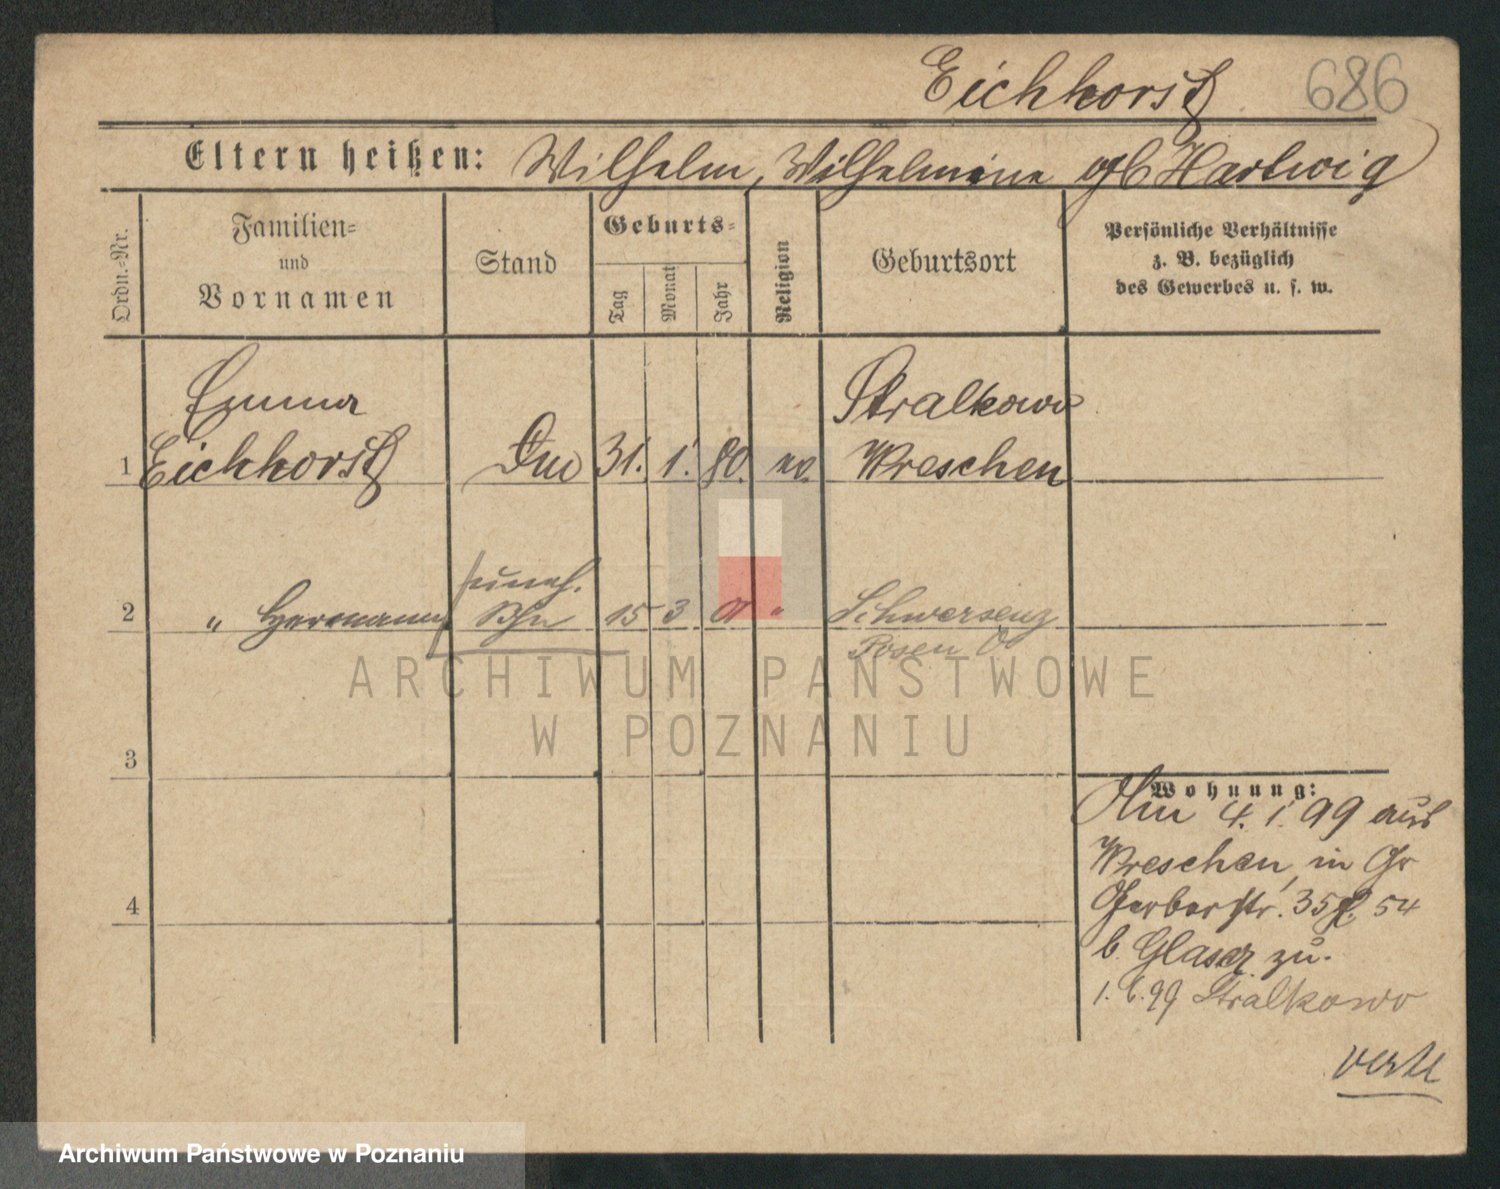 Eichhorst 686
Eltern heißen: Wilhelm, Wilhelmine gb Hartwig
Ordn.-Nr.
Familien-
und
Vornamen
Stand
Geburts-
Tag
Monat
Jahr
Religion
Geburtsort
Persönliche Verhältnisse
z. B. bezüglich
des Gewerbes u. s. w.
Emma Stralkowo
1 Eichhorst 31. 1. 80. Wreschen
uneh.
2 " Hermann Sohn 15 3 " Schwersenz
Posen O
ARCHIWUM PAŃSTWOWE
W POZNANIU
3
4
Wohnung:
Am 4. 1. 99 aus
Wreschen, in Gr
Gerberstr. 35 54
b. Glaser zu.
1. 6. 99 Stralkowo
verte
Archiwum Państwowe w Poznaniu